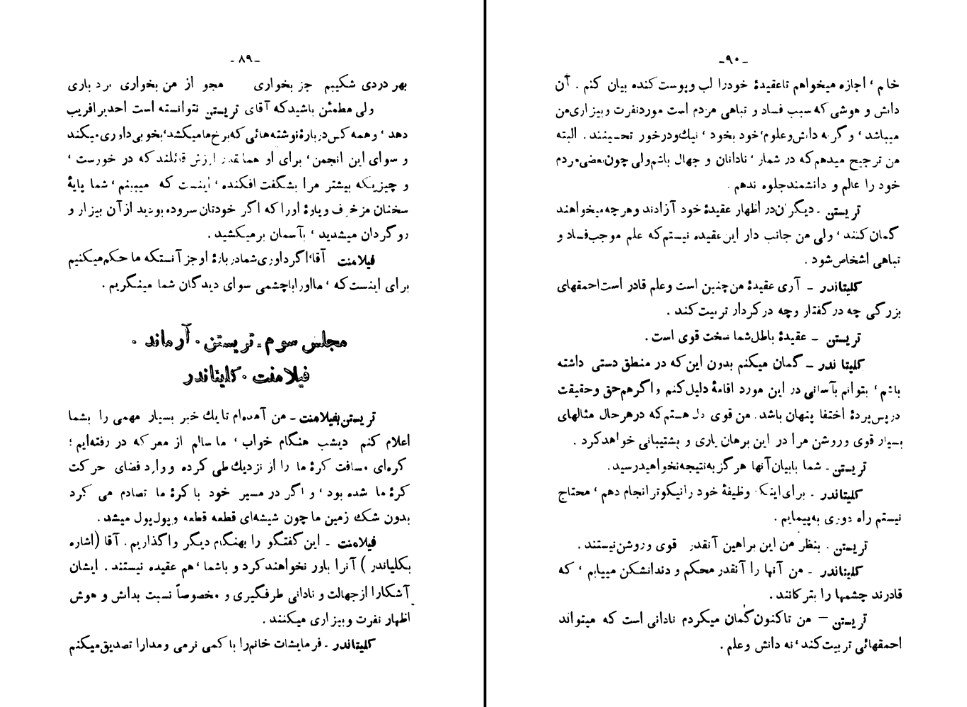 -۸۹-
بهر دردی شکیبم جز بخواری مجو از من بخواری بردباری
ولی مطمئن باشید که آقای تریستن نتوانسته است احدیرافریب
دهد ، و همه کس دربارهٔ نوشته‌هائی که برخ ما میکشد، بخوبی داوری میکند
و سوای این انجمن ، برای او همانقدر ارزش قائلند که در خورست ،
و چیزیکه بیشتر مرا بشگفت افکنده ، اینست که میبینم ، شما پایهٔ
سخنان مزخرف و یارهٔ او را که اگر خودتان سروده بودید از آن بیزار و
روگردان میشدید ، بآسمان بر میکشید .
فیلامنت آقا، اگر داوری شما دربارهٔ او جز آنستکه ما حکم میکنیم
برای اینست که ، ما او را با چشمی سوای دیدگان شما مینگریم .
مجلس سوم . تریستن . آرماند .
فیلامنت . کلیتاندر
تریستن بفیلامنت – من آمده‌ام تا یك خبر بسیار مهمی را بشما
اعلام کنم دیشب هنگام خواب ، ما سالم از معرکه در رفته‌ایم ؛
کره‌ای مسافت کرهٔ ما را از نزدیك طی کرده و وارد فضای حرکت
کرهٔ ما شده بود ، و اگر در مسیر خود با کرهٔ ما تصادم می کرد
بدون شك زمین ما چون شیشه‌ای قطعه قطعه و پول پول میشد.
فیلامنت - این گفتگو را بهنگام دیگر واگذاریم . آقا (اشاره
بکلیاندر) آنرا باور نخواهند کرد و باشما ، هم عقیده نیستند . ایشان
آشکارا از جهالت و نادانی طرفگیری و مخصوصاً نسبت بدانش و هوش
اظهار نفرت و بیزاری میکنند .
کلیتاندر- فرمایشات خانم را با کمی نرمی و مدارا تصدیق میکنم
-۹۰-
خانم ، اجازه میخواهم تا عقیدهٔ خود را لب و پوست کنده بیان کنم . آن
دانش و هوشی که سبب فساد و تباهی مردم است مورد نفرت و بیزاری من
میباشد ، و گرنه دانش و علوم ، خود بخود ، نیك و در خور تحسینند . البته
من ترجیح میدهم که در شمار ، نادانان و جهال باشم ولی چون بعضی مردم
خود را عالم و دانشمند جلوه ندهم .
تریستن - دیگران در اظهار عقیدهٔ خود آزادند و هر چه میخواهند
گمان کنند ، ولی من جانب دار این عقیده نیستم که علم موجب فساد و
تباهی اشخاص شود .
کلیتاندر - آری عقیدهٔ من چنین است و علم قادر است احمقهای
بزرگی چه در گفتار و چه در کردار تربیت کند .
تریستن - عقیدهٔ باطل شما سخت قوی است .
کلیتا ندر - گمان میکنم بدون این که در منطق دستی داشته
باشم ، بتوانم بآسانی در این مورد اقامهٔ دلیل کنم و اگر هم حق و حقیقت
در پس پردهٔ اختفا پنهان باشد. من قوی دل هستم که در هر حال مثالهای
بسیار قوی و روشن مرا در این برهان یاری و پشتیبانی خواهد کرد .
تریستن. شما با بیان آنها هرگز به نتیجه نخواهید رسید.
کلیتاندر . برای اینکه وظیفهٔ خود را نیکوتر انجام دهم ، محتاج
نیستم راه دوری به پیمایم .
تریستن . بنظر من این براهین آنقدر قوی و روشن نیستند .
کلیتاندر - من آنها را آنقدر محکم و دندانشکن مییابم ، که
قادرند چشمها را بترکانند .
تریستن – من تاکنون گمان میکردم نادانی است که میتواند
احمقهائی تربیت کند ، نه دانش و علم .